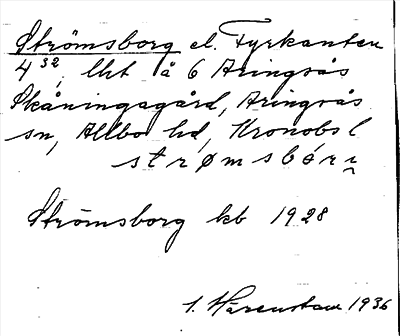 Strömsborg el. Fyrkanten
4³², lht å 6 Aringsås
Skåningagård, Aringsås
sn, Allbo hd, Kronobs l
strømsbórꭚ
Strömsborg kb 1928
1. Härenstam 1936